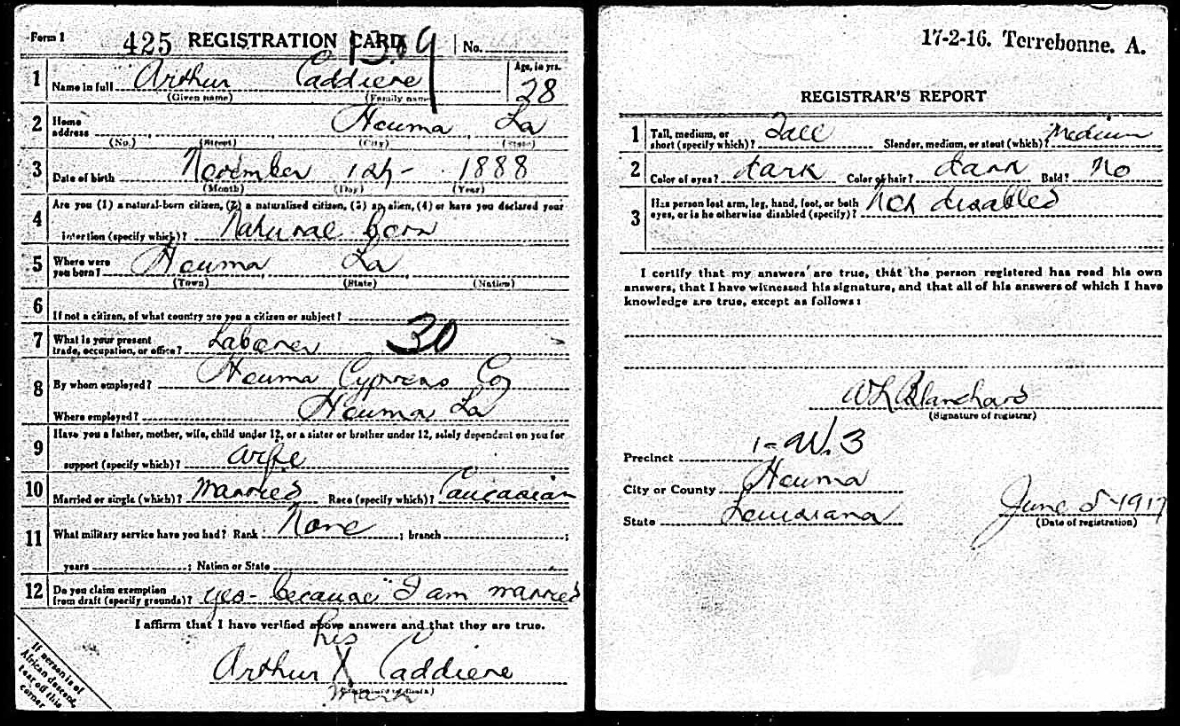 Form 1 425 REGISTRATION CARD 1379 No.
1 Name in full Arthur Caddiere Age, in yrs. 28
(Given name) (Family name)
2 Home address Houma La
(No.) (Street) (City) (State)
3 Date of birth November 12th 1888
(Month) (Day) (Year)
4 Are you (1) a natural-born citizen, (2) a naturalized citizen, (3) an alien, (4) or have you declared your
intention (specify which)? Natural born
5 Where were you born? Houma La
(Town) (State) (Nation)
6 If not a citizen, of what country are you a citizen or subject?
7 What is your present trade, occupation, or office? Laborer 30
8 By whom employed? Houma Cypress Co
Where employed? Houma La
9 Have you a father, mother, wife, child under 12, or a sister or brother under 12, solely dependent on you for
support (specify which)? Wife
10 Married or single (which)? Married Race (specify which)? Caucasian
11 What military service have you had? Rank None ; branch ;
years ; Nation or State
12 Do you claim exemption from draft (specify grounds)? yes- because I am married
I affirm that I have verified above answers and that they are true.
his
Arthur X Caddiere
mark
If person is of
African descent,
tear off this
corner
17-2-16. Terrebonne. A.
REGISTRAR'S REPORT
1 Tall, medium, or short (specify which)? Tall Slender, medium, or stout (which)? Medium
2 Color of eyes? dark Color of hair? dark Bald? No
3 Has person lost arm, leg, hand, foot, or both eyes, or is he otherwise disabled (specify)? Not disabled
I certify that my answers are true, that the person registered has read his own
answers, that I have witnessed his signature, and that all of his answers of which I have
knowledge are true, except as follows:
W L Blanchard
(Signature of registrar)
Precinct 1-W.3
City or County Houma
State Louisiana
June 5-1917
(Date of registration)